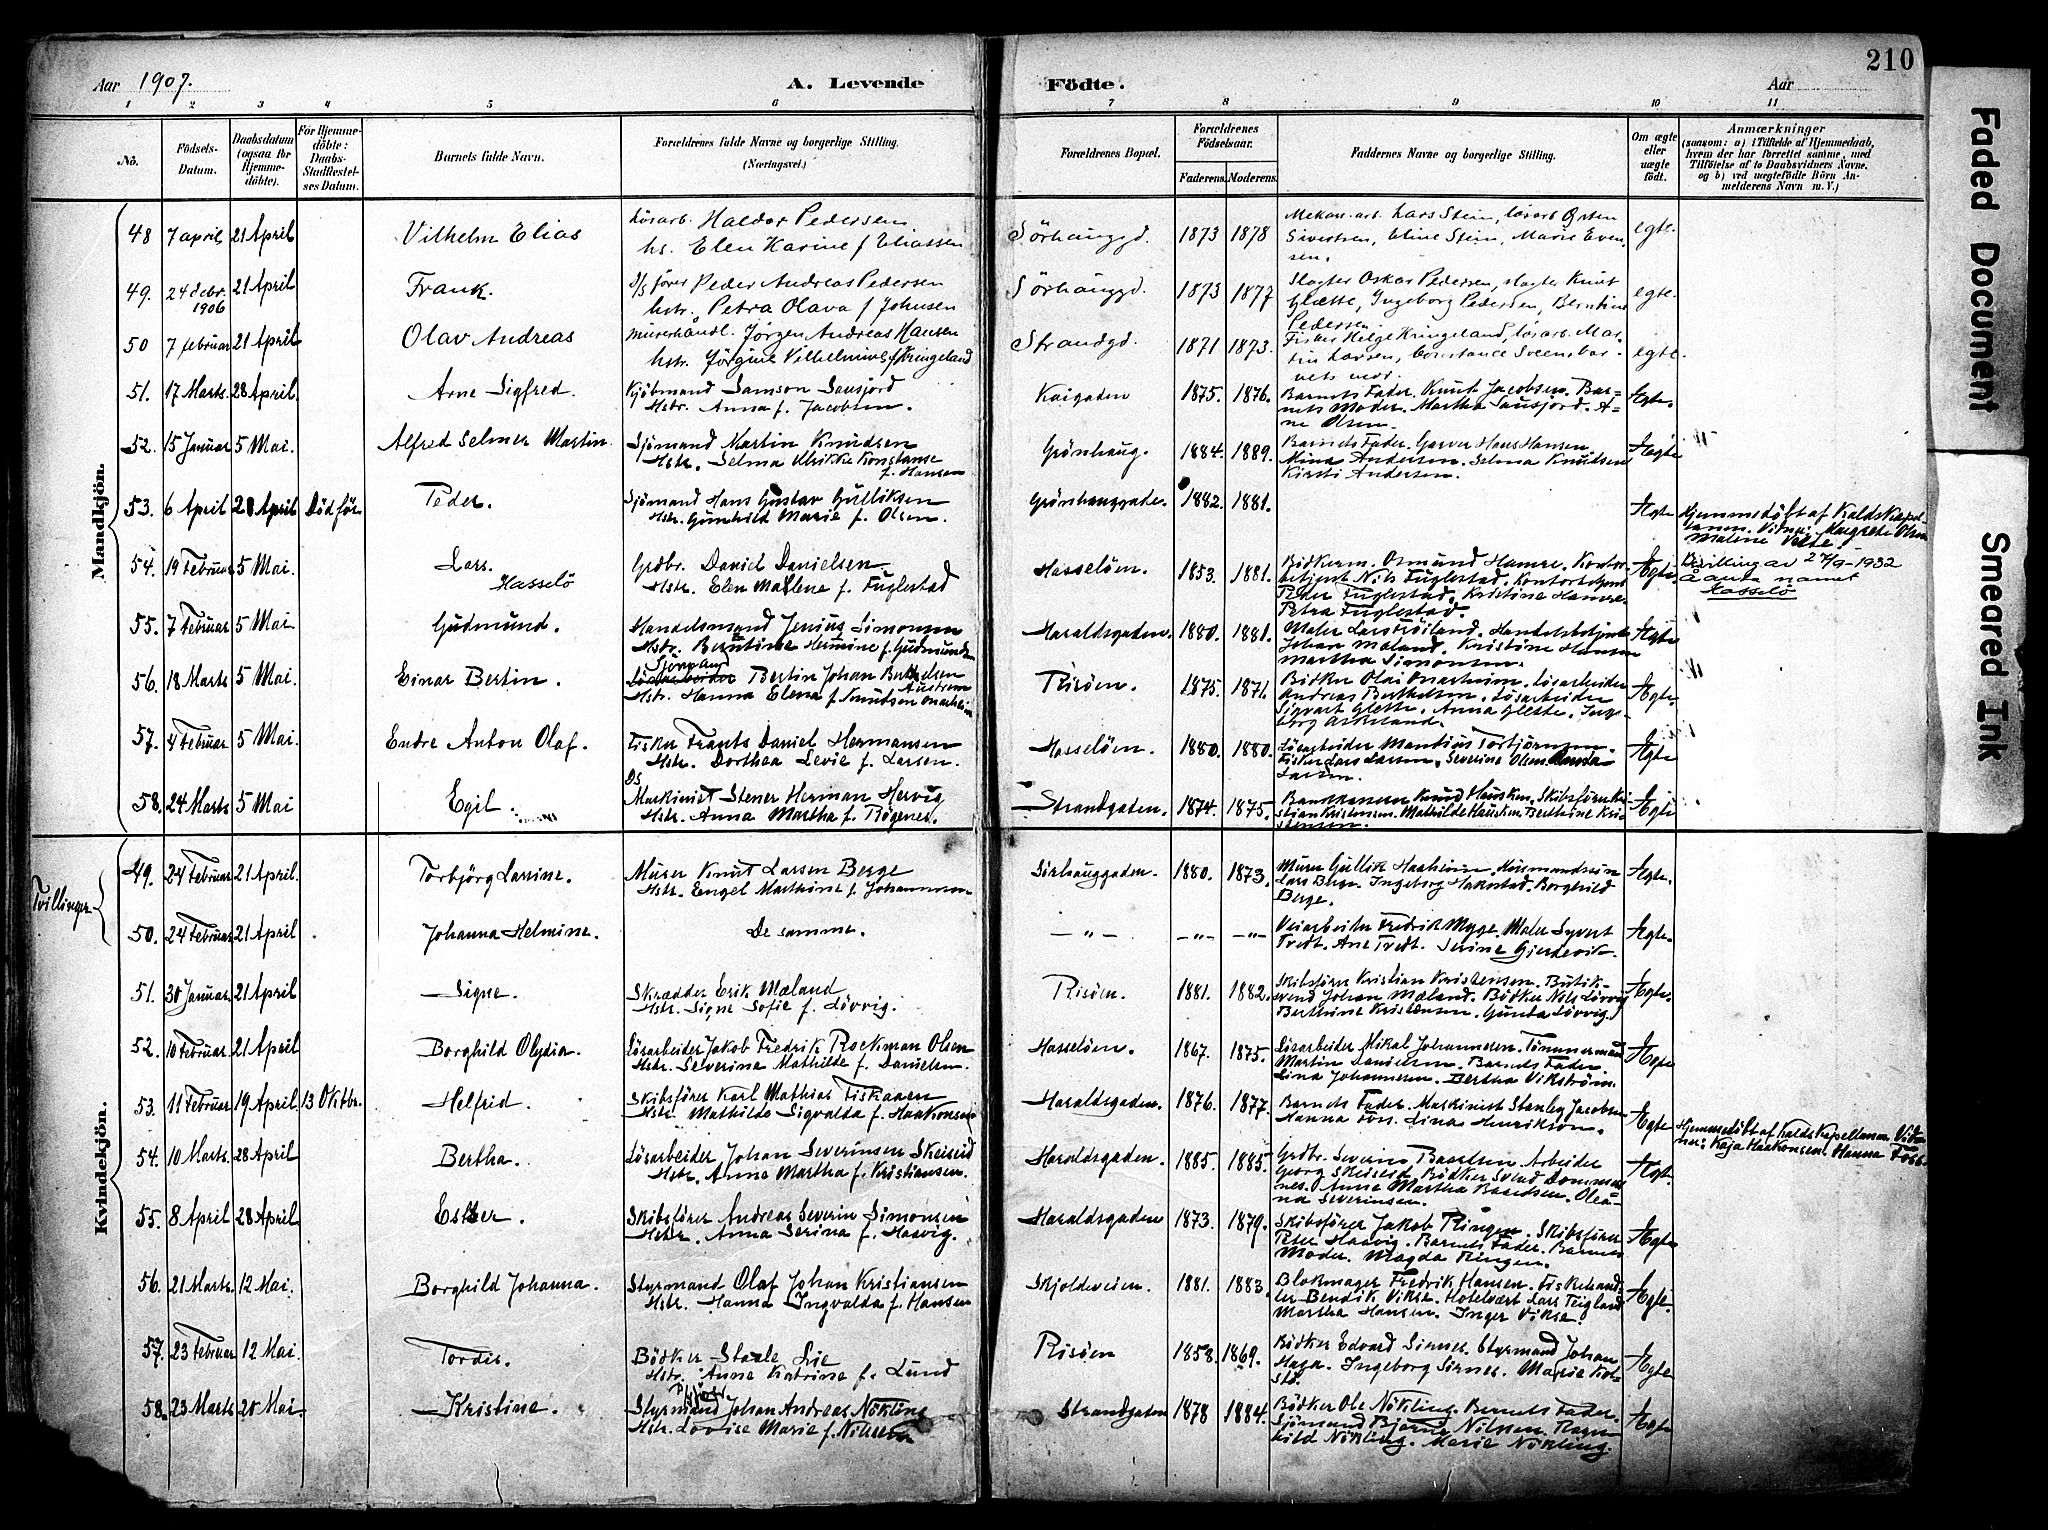 210
Aar 1907.
A. Levende
Födte.
Aar
1 2 3 4 5 6 7 8 9 10 11
No.
Födsels-Datum.
Daabsdatum (ogsaa for Hjemmedöbte).
För Hjemmedöbte: Daabs-Stadfæstelses Datum.
Barnets fulde Navn.
Forældrenes fulde Navne og borgerlige Stilling. (Næringsvei.)
Forældrenes Bopæl.
Forældrenes Födselsaar.
Faderens. Moderens.
Faddernes Navne og borgerlige Stilling.
Om ægte eller uægte födt.
Anmærkninger
(saasom: a) i Tilfælde af Hjemmedaab, hvem der har forrettet samme, med Tilföielse af to Daabsvidners Navne. og b) ved uægtefödte Börn Anmelderens Navn m. V.)
Mandkjön.
48 7 april 21 April Vilhelm Elias
Lösarb. Haldor Pedersen
hs. Elen Karine f Eliassen
Sörhauggd. 1873 1878
Mekan. arb. Lars Stein, lösarb Østen
Sivertsen, Eline Stein, Marie Even-
sen.
egte.
49. 24 febr. 1906 21 April Frank.
D/S förer Peder Andreas Pedersen
hstr. Petra Olava f Johnsen
Sörhauggd. 1873 1877
Slagter Oskar Pedersen, slagter Knut
Glette, Ingeborg Pedersen, Berntine
Pedersen.
egte.
50 7 februar 21 April Olav Andreas
Murerhåndl. Jørgen Andreas Hansen
hstr. Jørgine Vilhelmine f Kringeland
Strandgd. 1871 1873.
Fisker Helge Kringeland, lösarb. Mar-
tin Larsen, Constance Sveen, bar-
nets mor.
egte.
51. 17 Marts. 28 April. Arne Sigfred.
Kjöbmand Samson Sausjord
Hstr. Anna f. Jacobsen.
Kaigaden 1875. 1876.
Barnets Fader. Knut Jacobsen. Bar-
nets Moder. Martha Sausjord. A-
ne Olsen.
Ægte.
52. 15 Januar 5 Mai. Alfred Selmer Martin.
Sjömand Martin Knudsen
Hstr. Selma Ulrikke Konstanse
f. Hansen
Grönhaug. 1884. 1889.
Barnets Fader. Garver Hans Hansen.
Mina Andersen. Selma Knudsen
Kirsti Andersen.
Uægte
53. 6 April 28 April Död för Peder.
Sjömand Hans Gustav Gulliksen
Hstr. Gunhild Marie f. Olsen.
Grönhauggaden. 1882. 1881.
Ægte
Hjemmedöbt af Kalds Kapel-
lanen. Vidner: Margrete Olsen
Malene
54. 19 Februar 5 Mai. Lars.
Hasselö
Grdbr. Daniel Danielsen.
Hstr. Elen Malene f. Fuglestad
Hasselöen. 1853. 1881.
Bödkerm. Osmund Hamre. Kontor-
betjent Nils Fuglestad. Kontorbetjent
Peder Fuglestad. Kristine Hamre.
Petra Fuglestad.
Ægte.
Bevilling av 27/9-1932
å anta navnet
Hasselö
55. 7 Februar 5 Mai Gudmund.
Handelsmand Jenius Simonsen
Hstr. Berntine Hermine f. Gudmunds
Haraldsgaden. 1880. 1881.
Martha Simonsen.
Johan Mæland. Kristine Hansen
Ægte
56. 18 Marts 5 Mai Einar Bertin.
Sjömand
Lösarbeider Bertin Johan Berthelsen
Hstr. Hanna Elena f. Knudsen Onarheim
Risöen. 1875. 1871.
Bödker Olai Onarheim. Lösarbeider
Andreas Berthelsen. Lösarbeider
Sigvart Glette. Anna Glette. Inge-
borg
Ægte.
57. 4 Februar 5 Mai. Endre Anton Olaf.
Fisker Frants Daniel Hermansen
Hstr. Dorthea Levie f. Larsen.
Hasselöen. 1880. 1880.
Lösarbeider
Fisker Lars Larsen. Severine Olsen
Larsen.
Ægte
58. 24 Marts 5 Mai Egil.
DS
Maskinist Stener Herman Hervig
Hstr. Anna Martha f. Rögenes.
Strandgaden. 1874. 1875.
Knud Hausken. Skibsförer Kri-
stian Kristensen. Mathilde Hausken. Berthine Kri-
stensen.
Ægte
Kvindekjön.
Tvillinger
49. 24 Februar 21 April. Torbjörg Larsine.
Murer Knut Larsen Berge
Hstr. Engel Marthine f. Johannessen
Sörhauggaden. 1880. 1873.
Murer Gullik Haaheim.
Lars Berge. Ingeborg Hakestad. Borghild
Berge.
Ægte.
50. 24 Februar 21 April Johanna Helmine.
De samme.
-"- -"- -"-
Veiarbeider Fredrik Myge. Maler Syvert
Tvedt. Ane Tvedt. Serine Gjerdevik.
Ægte.
51. 30 Januar 21 April Signe.
Skrædder Erik Mæland
Hstr. Signe Sofie f. Lövvig.
Risöen. 1881. 1882.
Skibsförer Kristian Kristensen. Butik-
svend Johan Mæland. Bödker Nils Lövvig
Berthine Kristensen. Gunda Lövvig.
Ægte.
52. 10 Februar. 21 April Borghild Olydia.
Lösarbeider Jakob Fredrik Rockman Olsen
Hstr. Severine Mathilde f. Danielsen.
Hasselöen. 1867. 1875.
Lösarbeider Mikal Johannesen. Tömmermand
Martin Danielsen. Barnets Fader.
Lina Johannesen. Bertha Vikström.
Ægte
53. 11 Februar 19 April. 13 Oktbr. Helfrid.
Skibsförer Karl Mathias Fiskaaen
Hstr. Mathilde Sigvalda f. Haakonsen
Haraldsgaden. 1876. 1877.
Barnets Fader. Maskinist Stanley Jacobsen
Hanna Foss. Lina Henrikson.
Ægte
Hjemmedöbt af Kalds Kapellanen. Vid-
ner: Kaja Haakonsen. Hanna Foss.
54. 10 Marts. 28 April Bertha.
Lösarbeider Johan Severinsen Skeiseid
Hstr. Anne Martha f. Kristiansen.
Haraldsgaden. 1885. 1885.
Grdbr. Severin Baardsen. Arbeider
Georg Skeiseid. Bödker Svend Dommers-
nes. Anne Martha Baardsen. Olea-
na Severinsen.
Ægte.
55. 8 April 28 April Ester.
Skibsförer Andreas Severin Simonsen
Hstr. Anna Serina f. Haavig.
Haraldsgaden 1873. 1879.
Skibsförer Jakob Ringen. Skibsförer
Peter Haavig. Barnets Fader. Barnets
Moder. Magda Ringen.
Ægte
56. 21 Marts 12 Mai. Borghild Johanna.
Styrmand Olaf Johan Kristiansen
Hstr. Hanna Ingvalda f. Hansen
Skjoldveien. 1881. 1883.
Blokmager Fredrik Hansen. Fiskehand-
ler Bendik Vikse. Hotelvært Lars Teigland
Martha Hansen. Inger Vikse.
Ægte.
57. 23 Februar 12 Mai. Tordis.
Bödker Staale Lie
Hstr. Anne Katrine f. Lund
Risöen 1858. 1869.
Bödker Edvard Sirnes. Styrmand Johan
Haga. Ingeborg Sirnes. Marie Kol-
stö.
Ægte
58. 23 Marts 20 Mai. Kristine.
Styrmand Johan Andreas Nökling
Hstr. Lovise Marie f. Nilssen
Strandgaden 1878 1884.
Bödker Ole Nökling. Barnets Fader.
Sjömand Bjarne Nilssen. Ragn-
hild Nökling. Marie Nökling.
Ægte
Faded Document
Smeared Ink